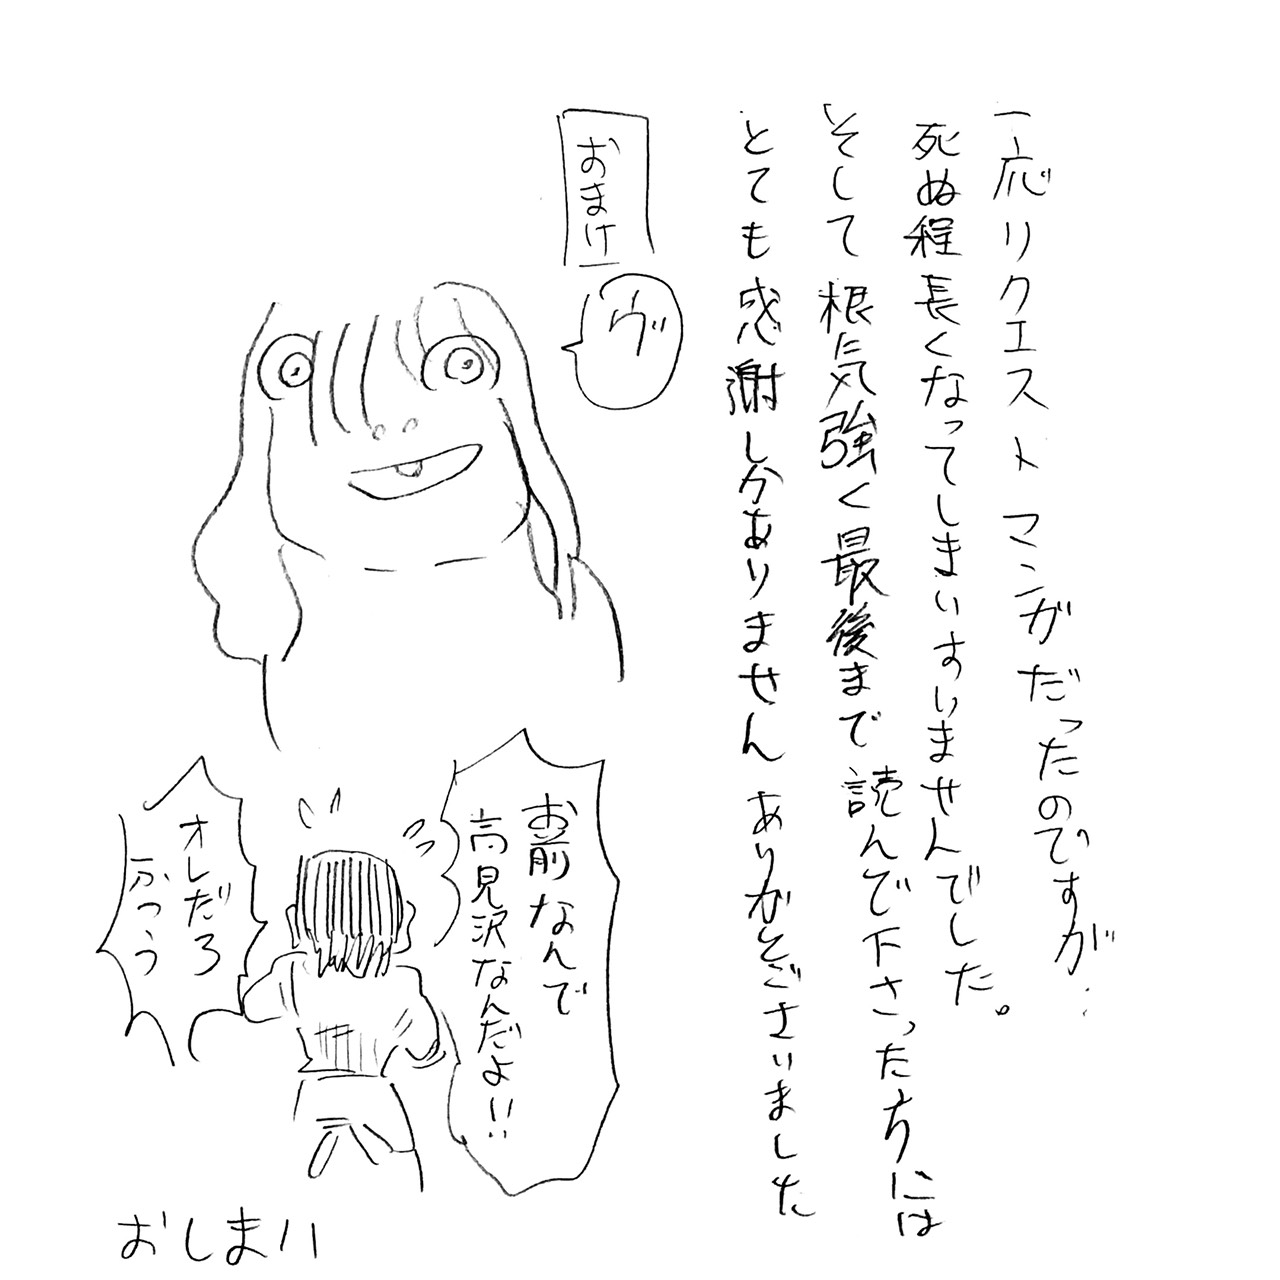 一応リクエストマンガだったのですが…
死ぬ程長くなってしまいすいませんでした。
そして根気強く最後まで読んで下さった方には
とても感謝しかありませんありがとございました
おまけ
ヴッ
お前なんで
高見沢なんだよ!!
オレだろ
ふつう
おしまい